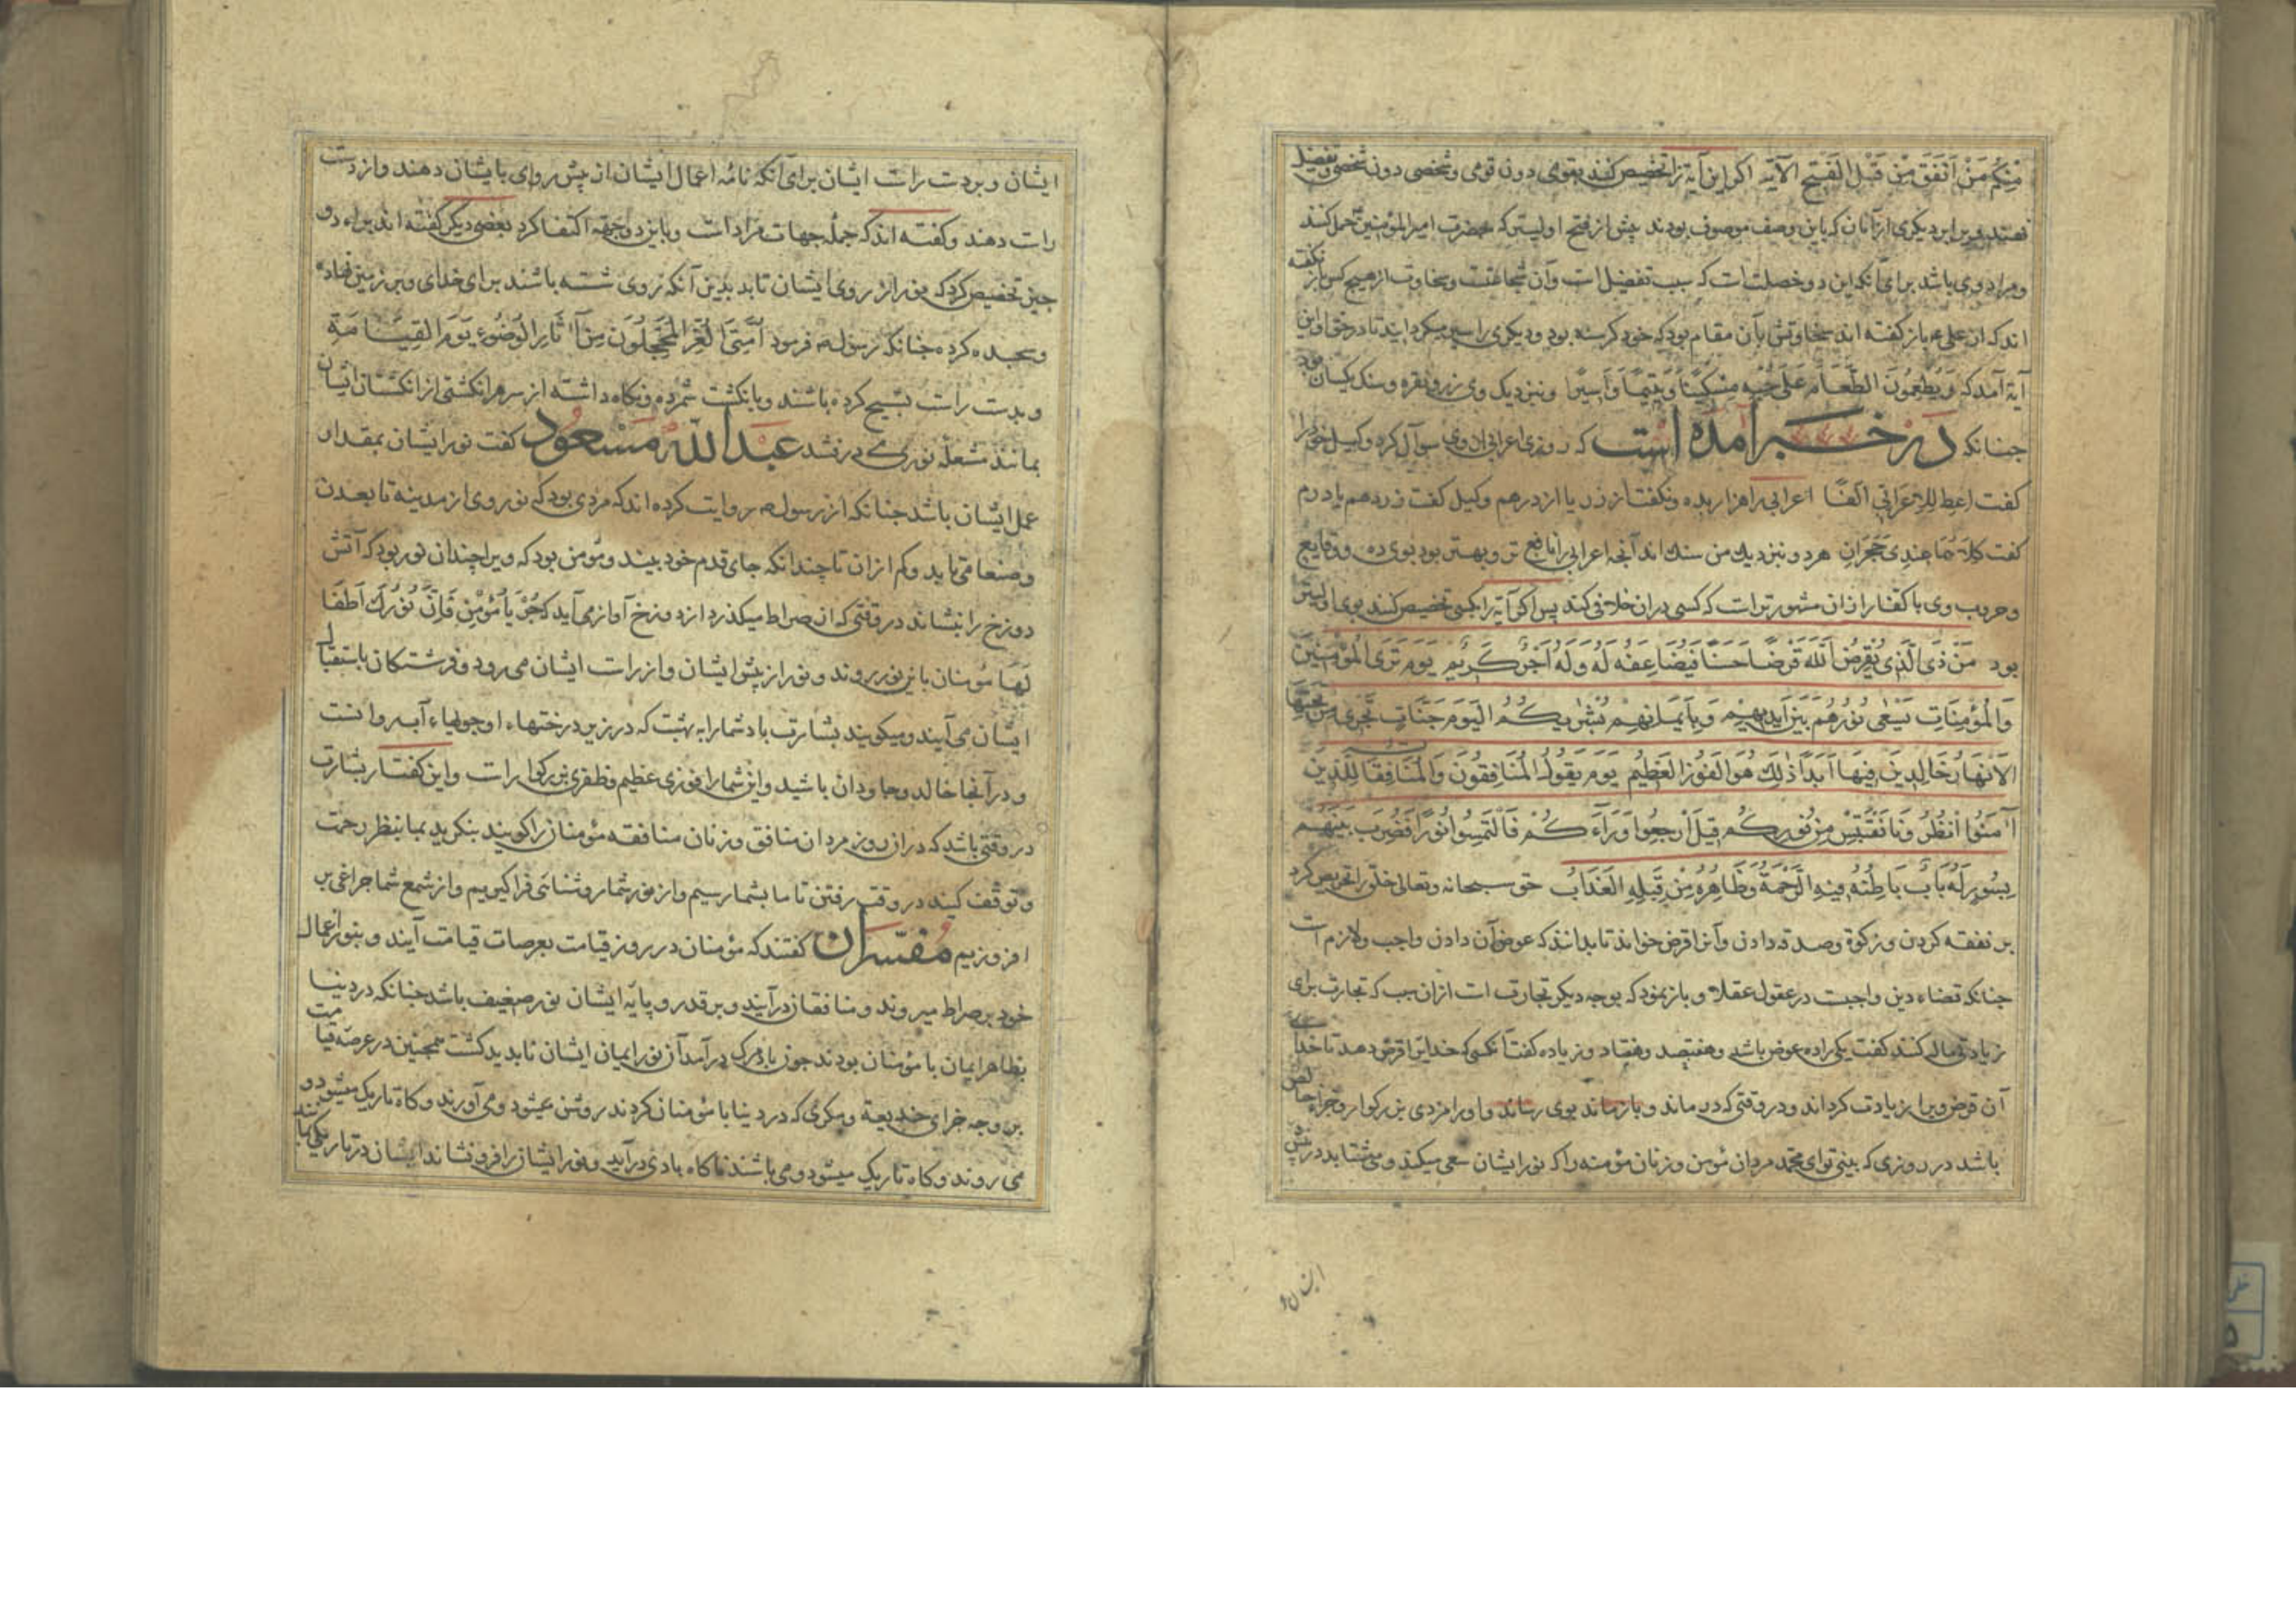 مِنْكُمْ مَنْ اَنْفَقَ مِنْ قَبْلِ الْفَتْحِ الآیَة اکر این آیة را تخصیص کنند بقومی دون قومی و شخصی دون شخصی و تفضیل
نهند بر دیکری ازآنان که باین وصف موصوف بودند پیش از فتح اولیتر که بحضرت امیرالمؤمنین حمل کنند
و مراد وی باشد برای آنکه این دو خصلت است که سبب تفضیل است وآن شجاعت و سخاوت از هیچ کس باز نکفته
اند که از علی ع باز کفته اند سخاوتش بآن مقام بود که خود کرسنه بود و دیکری را سیر میکردانید تا در حق او این
آیة آمد که وَیُطْعِمُونَ الطَّعَامَ عَلَی حُبِّهِ مِسْکِیْنًا وَیَتِیْمًا وَاَسِیرًا و نزدیک وی زر و نقره و سنک یکسان بود
جنانکه در خبر آمده است که روزی اعرابی ازوی سوآل کرد وکیل خود را
کفت اعط للاعرابی الفًا اعرابی را هزار بده و نکفت از زر یا از درهم وکیل کفت زر دهم یا درم
کفت کلاهما عندی حجران هر دو نزدیك من سنك اند آنجه اعرابی را نافع تر و بهتر بود بوی ده و وقایع
و حروب وی با کفار ازان مشهورتر است که کسی دران خلافی کند پس اکر آیة را بکسی تخصیص کنند بوی اولیتر
بود مَنْ ذَی الَّذِی یُقْرِضُ اللّٰهَ قَرْضًا حَسَنًا فَیُضَاعِفَهُ لَهُ وَلَهُ اَجْرٌ کَرِیْمٌ یَوْمَ تَرَی الْمُؤْمِنِیْنَ
وَالْمُؤْمِنَاتِ یَسْعٰی نُورُهُمْ بَیْنَ اَیْدِیهِمْ وَبِاَیْمَانِهِمْ بُشْرٰیکُمُ الْیَوْمَ جَنَّاتٍ تَجْرِی مِنْ تَحْتِهَا
الْاَنْهَارُ خَالِدِینَ فِیهَا اَبَدًا ذٰلِكَ هُوَ الْفَوْزُ الْعَظِیمُ یَوْمَ یَقُولُ الْمُنَافِقُونَ وَالْمُنَافِقَاتُ لِلَّذِیْنَ
آمَنُوا انْظُرُونَا نَقْتَبِسْ مِنْ نُورِکُمْ قِیلَ ارْجِعُوا وَرَآءَکُمْ فَالْتَمِسُوا نُورًا فَضُرِبَ بَیْنَهُمْ
بِسُورٍ لَهُ بَابٌ بَاطِنُهُ فِیهِ الرَّحْمَةُ وَظَاهِرُهُ مِنْ قِبَلِهِ الْعَذَابُ حق سبحانه وتعالی خلق را تحریص کرد
بر نفقه کردن و زکوة وصدقه دادن وآنرا قرض خواند تا بدانند که عوض آن دادن واجب ولازم است
جنانکه قضاء دین واجبست در عقول عقلا و باز نمود که بوجه دیکر تجارت است ازان سبب که تجارت برای
زیادتی مال کنند کفت یکی را ده عوض باشد و هفتصد و هفتاد و زیاده کفت آنکسی که خدایرا قرض دهد تا خدای
آن قرض ویرا زیادت کرداند و در وقتی که درماند و باز ماند بوی رساند و اورا مزدی بزرکوار و جزاء خالص
باشد در روزی که بینی تو ای محمد مردان مؤمن و زنان مؤمنه را که نور ایشان سعی میکند و می شتابد در پیش
ایشان و بردست راست ایشان برای آنکه نامه اعمال ایشان از پیش روی بایشان دهند و از دست
راست دهند و کفته اند که جمله جهات مراد است و باین دو جهة اکتفا کرد بعضی دیکر کفته اند براء دو
جیز تخصیص کرد که نور از روی ایشان تابد بدین آنکه روی شسته باشند برای خدای و بر زمین نهاده
و سجده کرده جنانکه رسول ص فرمود اُمَّتِی الْغُرُّ الْمُحَجَّلُونَ مِنْ آثَارِ الْوُضُوءِ یَوْمَ الْقِیَامَةِ
و بدست راست تسبیح کرده باشند و بانکشت شمرده ونکاه داشته از سر هر انکشتی از انکشتان ایشان
بمانند شعلهٔ نوری می درفشد عبدالله مسعود کفت نور ایشان بمقدار
عمل ایشان باشد جنانکه از رسول ص روایت کرده اند که مردی بود که نور وی از مدینه تا بعدن
وصنعا می تابد و کم ازان تا چندانکه جای قدم خود بیند و مؤمن بود که ویرا چندان نور بود که آتش
دوزخ را نبشاند در وقتی که از صراط میکذرد از دوزخ آواز می آید که جُزْ یَا مُؤْمِنُ فَاِنَّ نُوْرَكَ اَطْفَا
لَهَبَا مؤمنان باین نور بروند و نور از پیش ایشان و از راست ایشان می رود و فرشتکان باستقبال
ایشان می آیند و میکویند بشارت باد شما را به بهشت که در زیر درختهاء او جویهاء آب روانست
و درآنجا خالد و جاودان باشید و این شما را فوزی عظیم و ظفری بزرکوار است و این کفتار بشارت
در وقتی باشد که دران روز مردان منافق و زنان منافقه مؤمنان را کویند بنکرید بما بنظر رحمت
و توقف کنید در وقت رفتن تا ما بشما رسیم و از نور شما روشنائی فرا کیریم و از شمع شما جراغی بر
افروزیم مفسران کفتند که مؤمنان در روز قیامت بعرصات قیامت آیند و بنور اعمال
خود بر صراط میروند و منافقان درآیند و بر قدر و پایهٔ ایشان نور ضعیف باشد جنانکه در دنیا
بظاهر ایمان با مؤمنان بودند جون باد مرک درآمد آن نور ایمان ایشان ناپدید کشت همجنین در عرصهٔ قیامت
بر وجه جزای خدیعة و مکری که در دنیا با مؤمنان کردند روشن میشود و می آورند و کاه تاریک میشود و
می روند و کاه تاریک میشود و می باشند ناکاه بادی درآید و نور ایشان را فرو نشاند ایشان در تاریکی بمانند